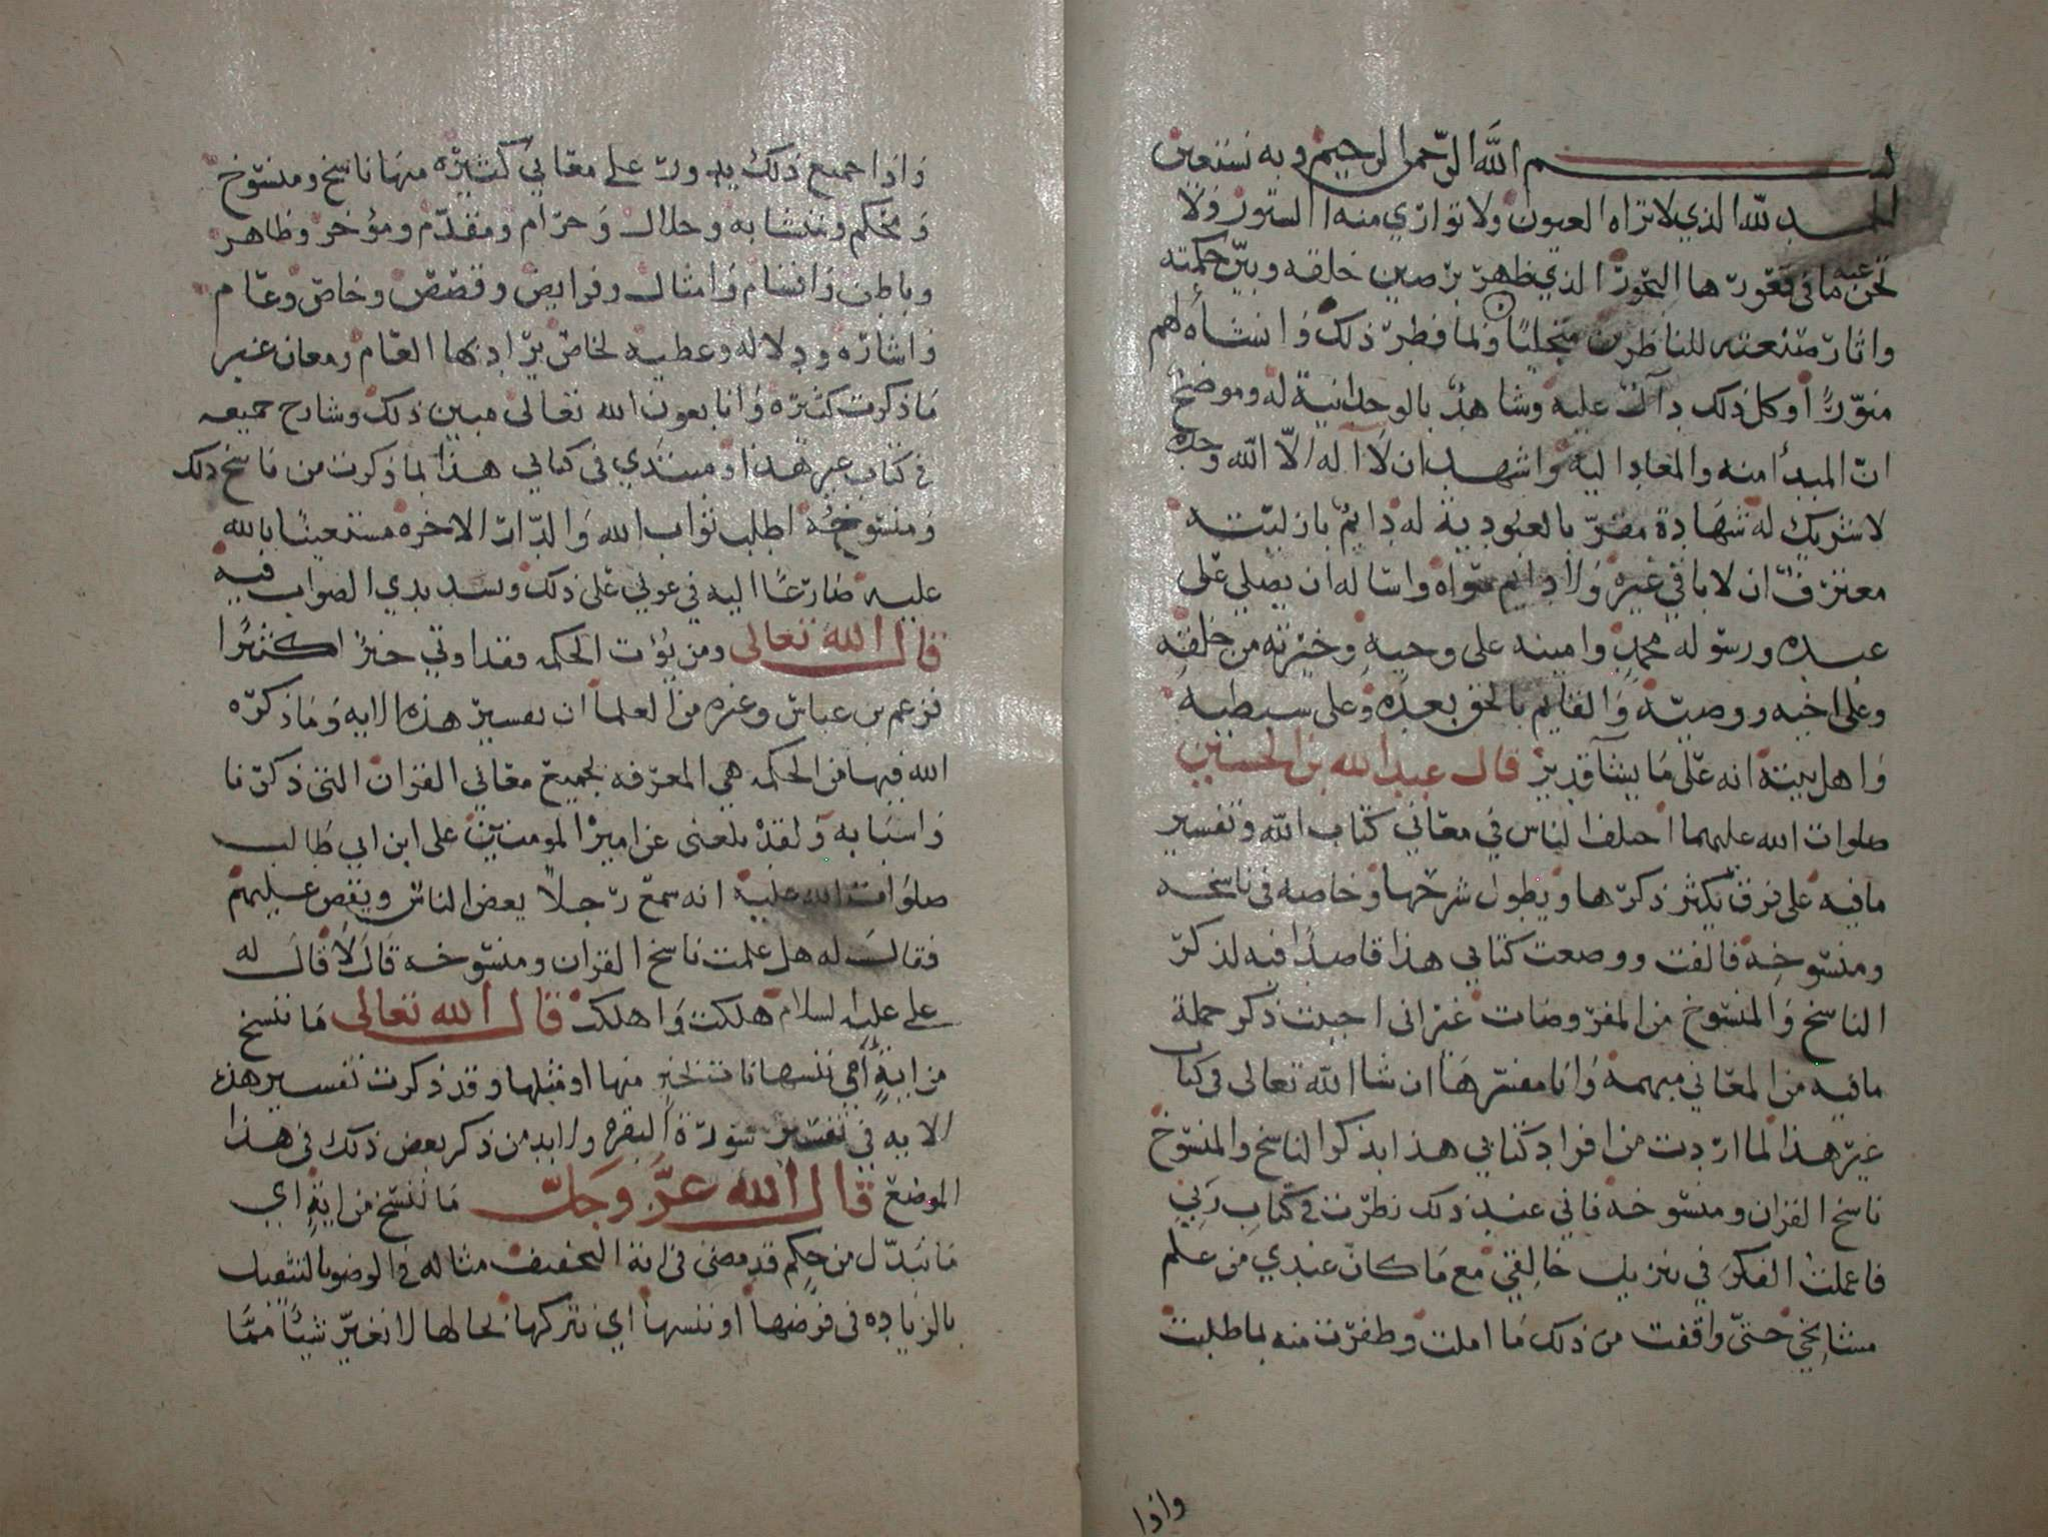 بسم الله الرحمن الرحيم وبه نستعين
الحمد لله الذي لا تراه العيون ولا تواري منه الستور ولا
تجن عنه ما في قعورها البحور الذي ظهر بر صين خلقه وبين حكمته
واثار صنعته للناظرين متجليا ولما فطر ذلك وانشأه لهم
منورا وكل ذلك دال عليه وشاهد بالوحدانية له وموضح
ان المبدأ منه والمعاد اليه واشهد ان لا اله الا الله وحده
لا شريك له شهادة مقر بالعبودية له دايم بازليته
معترف ان لا باقي غيره ولا دايم سواه واساله ان يصلي على
عبده ورسوله محمد وامينه على وحيه وخيرته من خلقه
وعلى اخيه ووصيه والقايم بالحق بعده وعلى سبطيه
واهل بيته انه على ما يشآ قدير قال عبد الله بن الحسين
صلوات الله عليهما اختلف الناس في معاني كتاب الله وتفسير
ما فيه على فرق يكثر ذكرها ويطول شرحها وخاصه في ناسخه
ومنسوخه فالفت ووضعت كتابي هذا قاصدا فيه لذكر
الناسخ والمنسوخ من المفروضات غير اني احببت ذكر جملة
ما فيه من المعاني مبهمة وانا مفسرها ان شا الله تعالى في كتاب
غير هذا لما اردت من افراد كتابي هذا بذكر الناسخ والمنسوخ
ناسخ القران ومنسوخه فاني عند ذلك نظرت في كتاب ربي
فاعملت الفكر في تنزيل خالقي مع ما كان عندي من علم
مشايخي حتى واقفت من ذلك ما املت وظفرت منه بما طلبت
واذا
واذا جميع ذلك يدور على معاني كثيره منها ناسخ ومنسوخ
ومحكم ومتشابه وحلال وحرام ومقدم ومؤخر وظاهر
وباطن واقسام وامثال وفرايض وقصص وخاص وعام
واشاره ودلاله وعطيه لخاص يراد بها العام ومعان غير
ما ذكرت كثيره وانا بعون الله تعالى مبين ذلك وشارح جميعه
في كتاب غير هذا ومبتدي في كتابي هذا بما ذكرت من ناسخ ذلك
ومنسوخه اطلب ثواب الله والدار الاخره مستعينا بالله
عليه ضارعا اليه في عوني على ذلك وتسديدي الصواب فيه
قال الله تعالى ومن يؤت الحكمه فقد اوتي خيرا كثيرا
فزعم بن عباس وغيره من العلما ان تفسير هذه الايه وما ذكره
الله فيها من الحكمه هي المعرفه بجميع معاني القران التي ذكرنا
واسبابه ولقد بلغني عن امير المومنين علي ابن ابي طالب
صلوات الله عليه انه سمع رجلا يعض الناس ويقص عليهم
فقال له هل علمت ناسخ القران ومنسوخه قال لا قال له
علي عليه السلام هلكت واهلكت قال الله تعالى ما ننسخ
من اية او ننسها نات بخير منها او مثلها وقد ذكرت تفسير هذه
الايه في تفسير سورة البقره ولا بد من ذكر بعض ذلك في هذا
الموضع قال الله عز وجل ما ننسخ من اية اي
ما نبدل من حكم قد مضى في اية التخفيف مثاله في الوضو التثقيل
بالزياده في فرضها او ننسها اي نتركها بحالها لا نغير شيئا مما